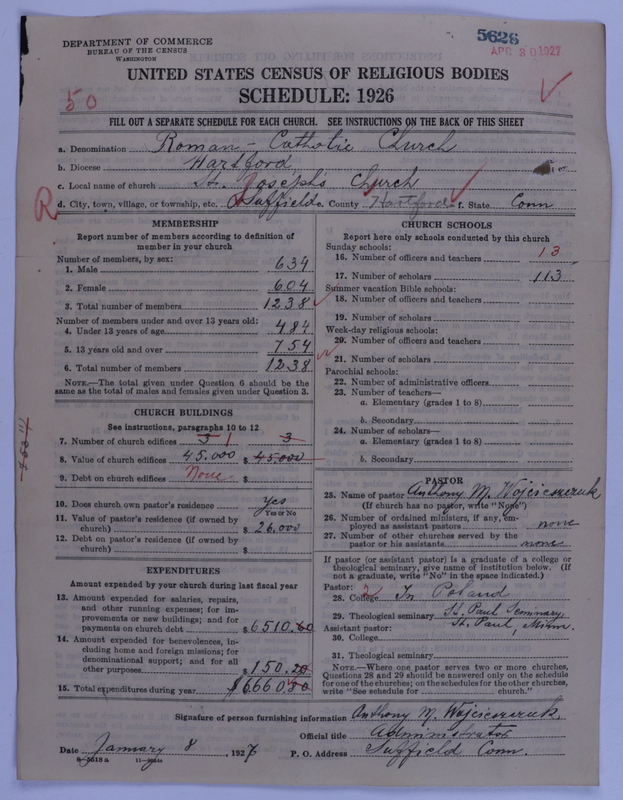 5628
APR 30 1927
DEPARTMENT OF COMMERCE
BUREAU OF THE CENSUS
WASHINGTON
UNITED STATES CENSUS OF RELIGIOUS BODIES
SCHEDULE: 1926
50
FILL OUT A SEPARATE SCHEDULE FOR EACH CHURCH. SEE INSTRUCTIONS ON THE BACK OF THIS SHEET
a. Denomination Roman-Catholic Church
b. Diocese Hartford
c. Local name of church St. Joseph's Church
R d. City, town, village, or township, etc. Suffield e. County Hartford f. State Conn
MEMBERSHIP
Report number of members according to definition of
member in your church
Number of members, by sex:
1. Male 634
2. Female 604
3. Total number of members 1238
Number of members under and over 13 years old:
4. Under 13 years of age 484
5. 13 years old and over 754
6. Total number of members 1238
NOTE.—The total given under Question 6 should be the
same as the total of males and females given under Question 3.
CHURCH BUILDINGS
See instructions, paragraphs 10 to 12
7. Number of church edifices 3 1 3
8. Value of church edifices 45.000 $ 45.000
9. Debt on church edifices None $
10. Does church own pastor's residence Yes
Yes or No
11. Value of pastor's residence (if owned by
church) $ 26.000
12. Debt on pastor's residence (if owned by
church) $
EXPENDITURES
Amount expended by your church during last fiscal year
13. Amount expended for salaries, repairs,
and other running expenses; for im-
provements or new buildings; and for
payments on church debt $ 6510.60
14. Amount expended for benevolences, in-
cluding home and foreign missions; for
denominational support; and for all
other purposes $ 150.20
15. Total expenditures during year $ 6660.80
CHURCH SCHOOLS
Report here only schools conducted by this church
Sunday schools:
16. Number of officers and teachers 13
17. Number of scholars 113
Summer vacation Bible schools:
18. Number of officers and teachers
19. Number of scholars
Week-day religious schools:
20. Number of officers and teachers
21. Number of scholars
Parochial schools:
22. Number of administrative officers
23. Number of teachers—
a. Elementary (grades 1 to 8)
b. Secondary
24. Number of scholars—
a. Elementary (grades 1 to 8)
b. Secondary
PASTOR
25. Name of pastor Anthony M. Wojcieszczuk
(If church has no pastor, write "None")
26. Number of ordained ministers, if any, em-
ployed as assistant pastors none
27. Number of other churches served by the
pastor or his assistants none
If pastor (or assistant pastor) is a graduate of a college or
theological seminary, give name of institution below. (If
not a graduate, write "No" in the space indicated.)
Pastor: 2
28. College In Poland
29. Theological seminary St. Paul Seminary,
Assistant pastor: St. Paul, Minn.
30. College
31. Theological seminary
NOTE.—Where one pastor serves two or more churches,
Questions 28 and 29 should be answered only on the schedule
for one of the churches; on the schedules for the other churches,
write "See schedule for church."
Signature of person furnishing information Anthony M. Wojcieszczuk
Official title Administrator
Date January 8, 1927 P. O. Address Suffield Conn.